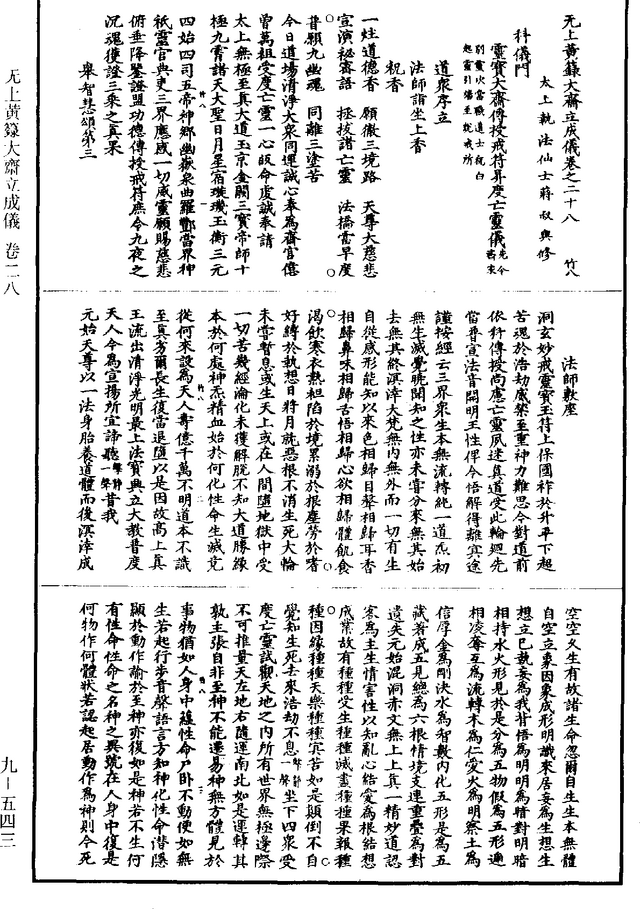 无上黃籙大齋立成儀卷之二十八　竹八
太上執法仙士蔣叔輿修
科儀門
靈寶大齋傳授戒符昇度亡靈儀
道眾序立
法師詣坐上香
祝香
一炷道德香　願徹三境路　天尊大慈悲
宣演祕密語　拯拔諸亡靈　法橋當早度
普願九幽魂　同離三塗苦
今日道場清淨大眾同運誠心奉為齋官億
曾萬祖受度亡靈一心皈命虔誠奉請
太上無極至真大道玉京金闕三寶帝師十
極九霄諸天大聖日月星宿璇璣玉衡三元
四始四司五帝神鄉幽嶽泉曲羅酆當界神
祇靈官典吏三界應感一切威靈願賜慈悲
俯垂降鑒證盟功德傳授戒符庶令九夜之
沉魂獲證三乘之真果
舉智慧頌第三
法師敷座
洞玄妙戒靈寶玉符上保國祚於升平下超
苦魂於浩劫感槩至重神力難思今對道前
依科傳授尚慮亡靈夙迷真道受此輪迴先
當普宣法音開明王性俾令悟解得離冥途
謹按經云三界眾生本無流轉純一道炁初
無生滅覺曉聞知之性亦未嘗分來無其始
去無其終溟涬大梵無內無外而一切有生
自從感形能知以來色相歸目聲相歸耳香
相歸鼻味相歸舌悟相歸心欲相歸體飢食
渴飲寒衣熱袒陷於境累溺於根塵勞於嗜
好縛於執想日將月旎惡根不消生死大輪
未嘗暫息或生天上或在人間隨地獄中受
一切苦幾經淪化未獲解脫不知大道勝緣
本於何處神炁精血始於何化性命生滅竟
從何來設為天人壽億千萬不明道本不識
至真芬爾長生復當退墮以是因故高上真
王流出清淨光明最上法寶興立大教普度
天人今為宣揚所宜諦聽擊磬一聲昔我
元始天尊以一法身胎養道體而後溟涬成
空空久生有故諸生命忽爾自生生本無體
自空立象因象成形明識來居妄為生想生
想立已執妄為我背悟為明明為暗對明暗
相持水火形見於是分為五物假為五形適
相凌奪互為流轉木為仁愛火為明察土為
信厚金為剛決水為智數內化五形是為五
藏著成五見總為六根情境支連重疊為對
遺失元始混洞赤文無上上真一精妙道認
客為主生情害性以知亂心結愛為根結想
成業故有種種受生種種滅盡種種果報種
種因緣種種天樂種種冥苦如是顛倒不自
覺知生死去來浩劫不息擊磬一聲坐下四眾受
度亡靈試觀天地之內所有世界無極邊際
不可推量天左地右隨運南北如是運轉其
孰主張自非至神不能遷易神無方體見於
事物猶如人身中蘊性命尸卧不動便如無
生若起行步音聲語言方知神化性命潛隱
顯於動作論於至神亦復如是神若不生何
有性命性命之名神之異號在人身中復是
何物作何體狀若認起居動作為神則今死
无上黃籙大齋立成儀　卷二八
九—五四三